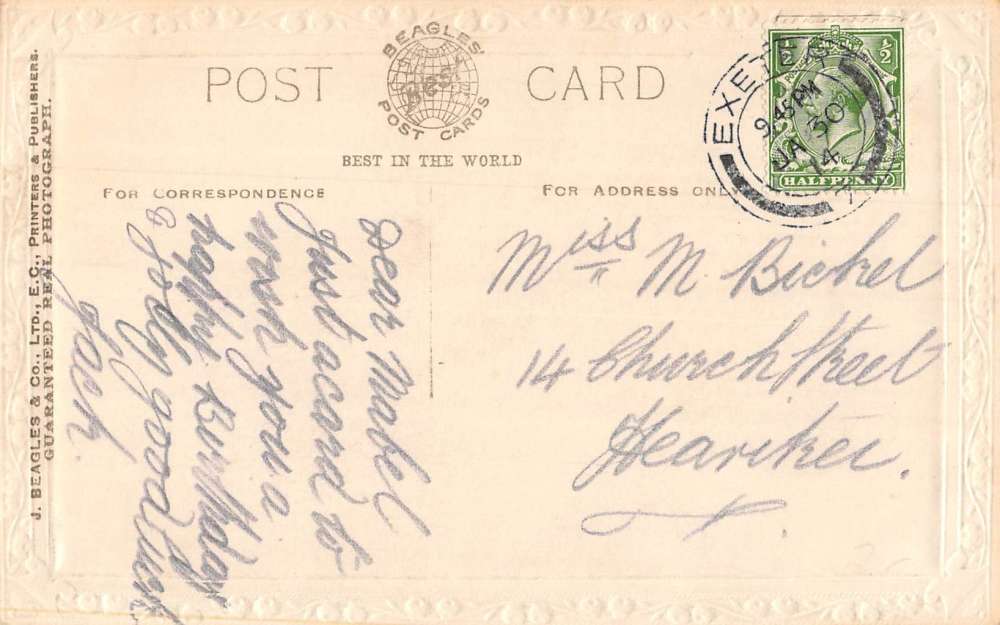 BEAGLES'
POST CARDS
POST CARD
BEST IN THE WORLD
FOR CORRESPONDENCE
FOR ADDRESS ONLY
J. BEAGLES & CO., LTD., E.C., PRINTERS & PUBLISHERS.
GUARANTEED REAL PHOTOGRAPH.
½ ½
HALFPENNY
EXETER
9.45 PM
JA 30
14
Dear Mabel
Just a card to
wish you a
happy Birthday
& jolly good luck
Jack
Miss M Bickel
14 Church Street
Heavitree.